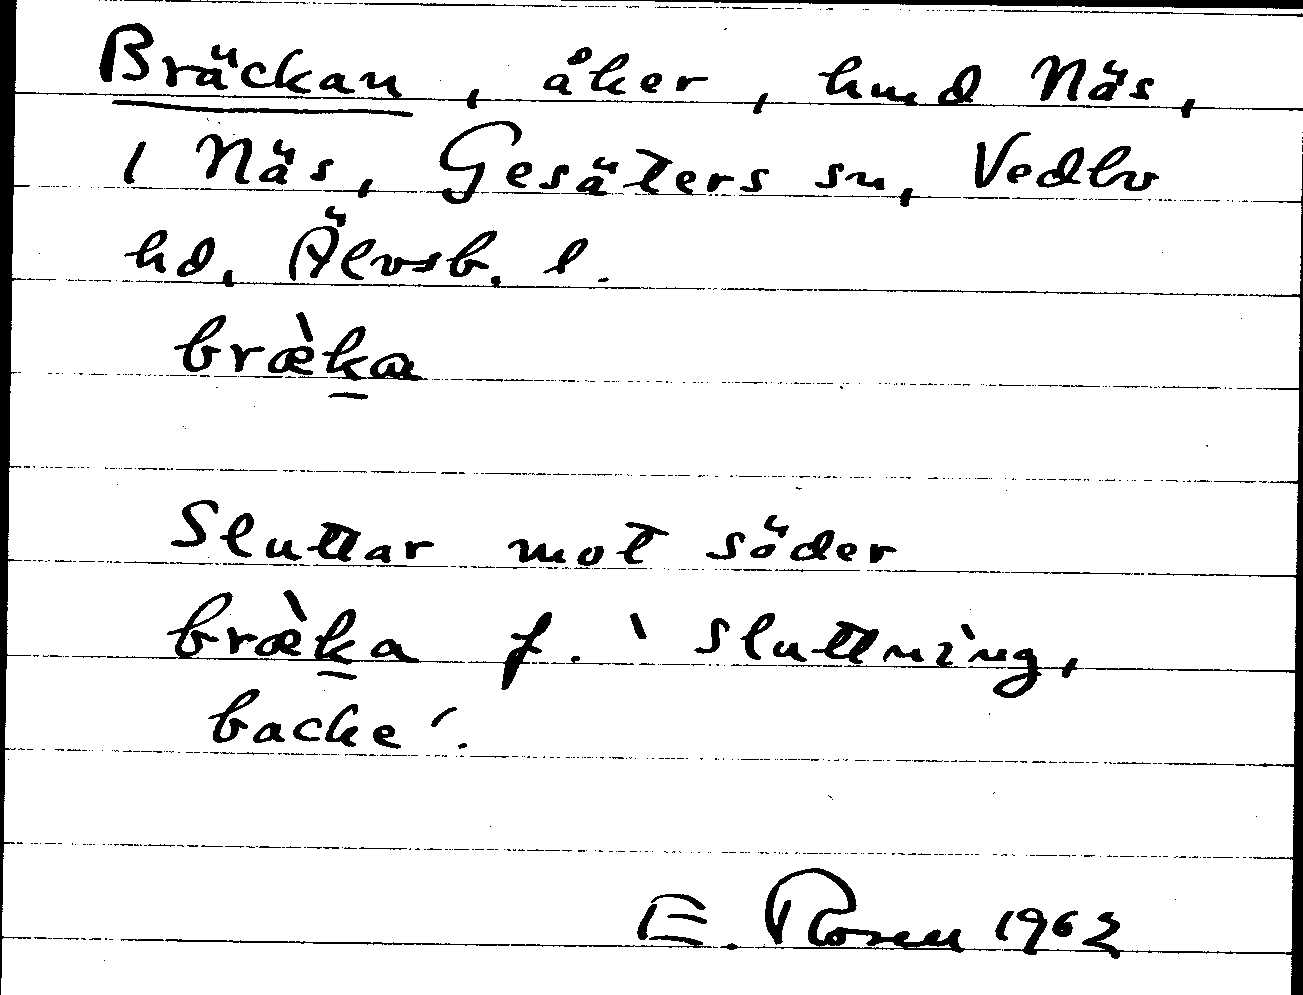 Bräckan, åker, hmd Näs,
1 Näs, Gesäters sn, Vedbo
hd, Älvsb. l.
bræ̀ka
Sluttar mot söder
bræ̀ka f. 'sluttning,
backe'.
E. Rosen 1962